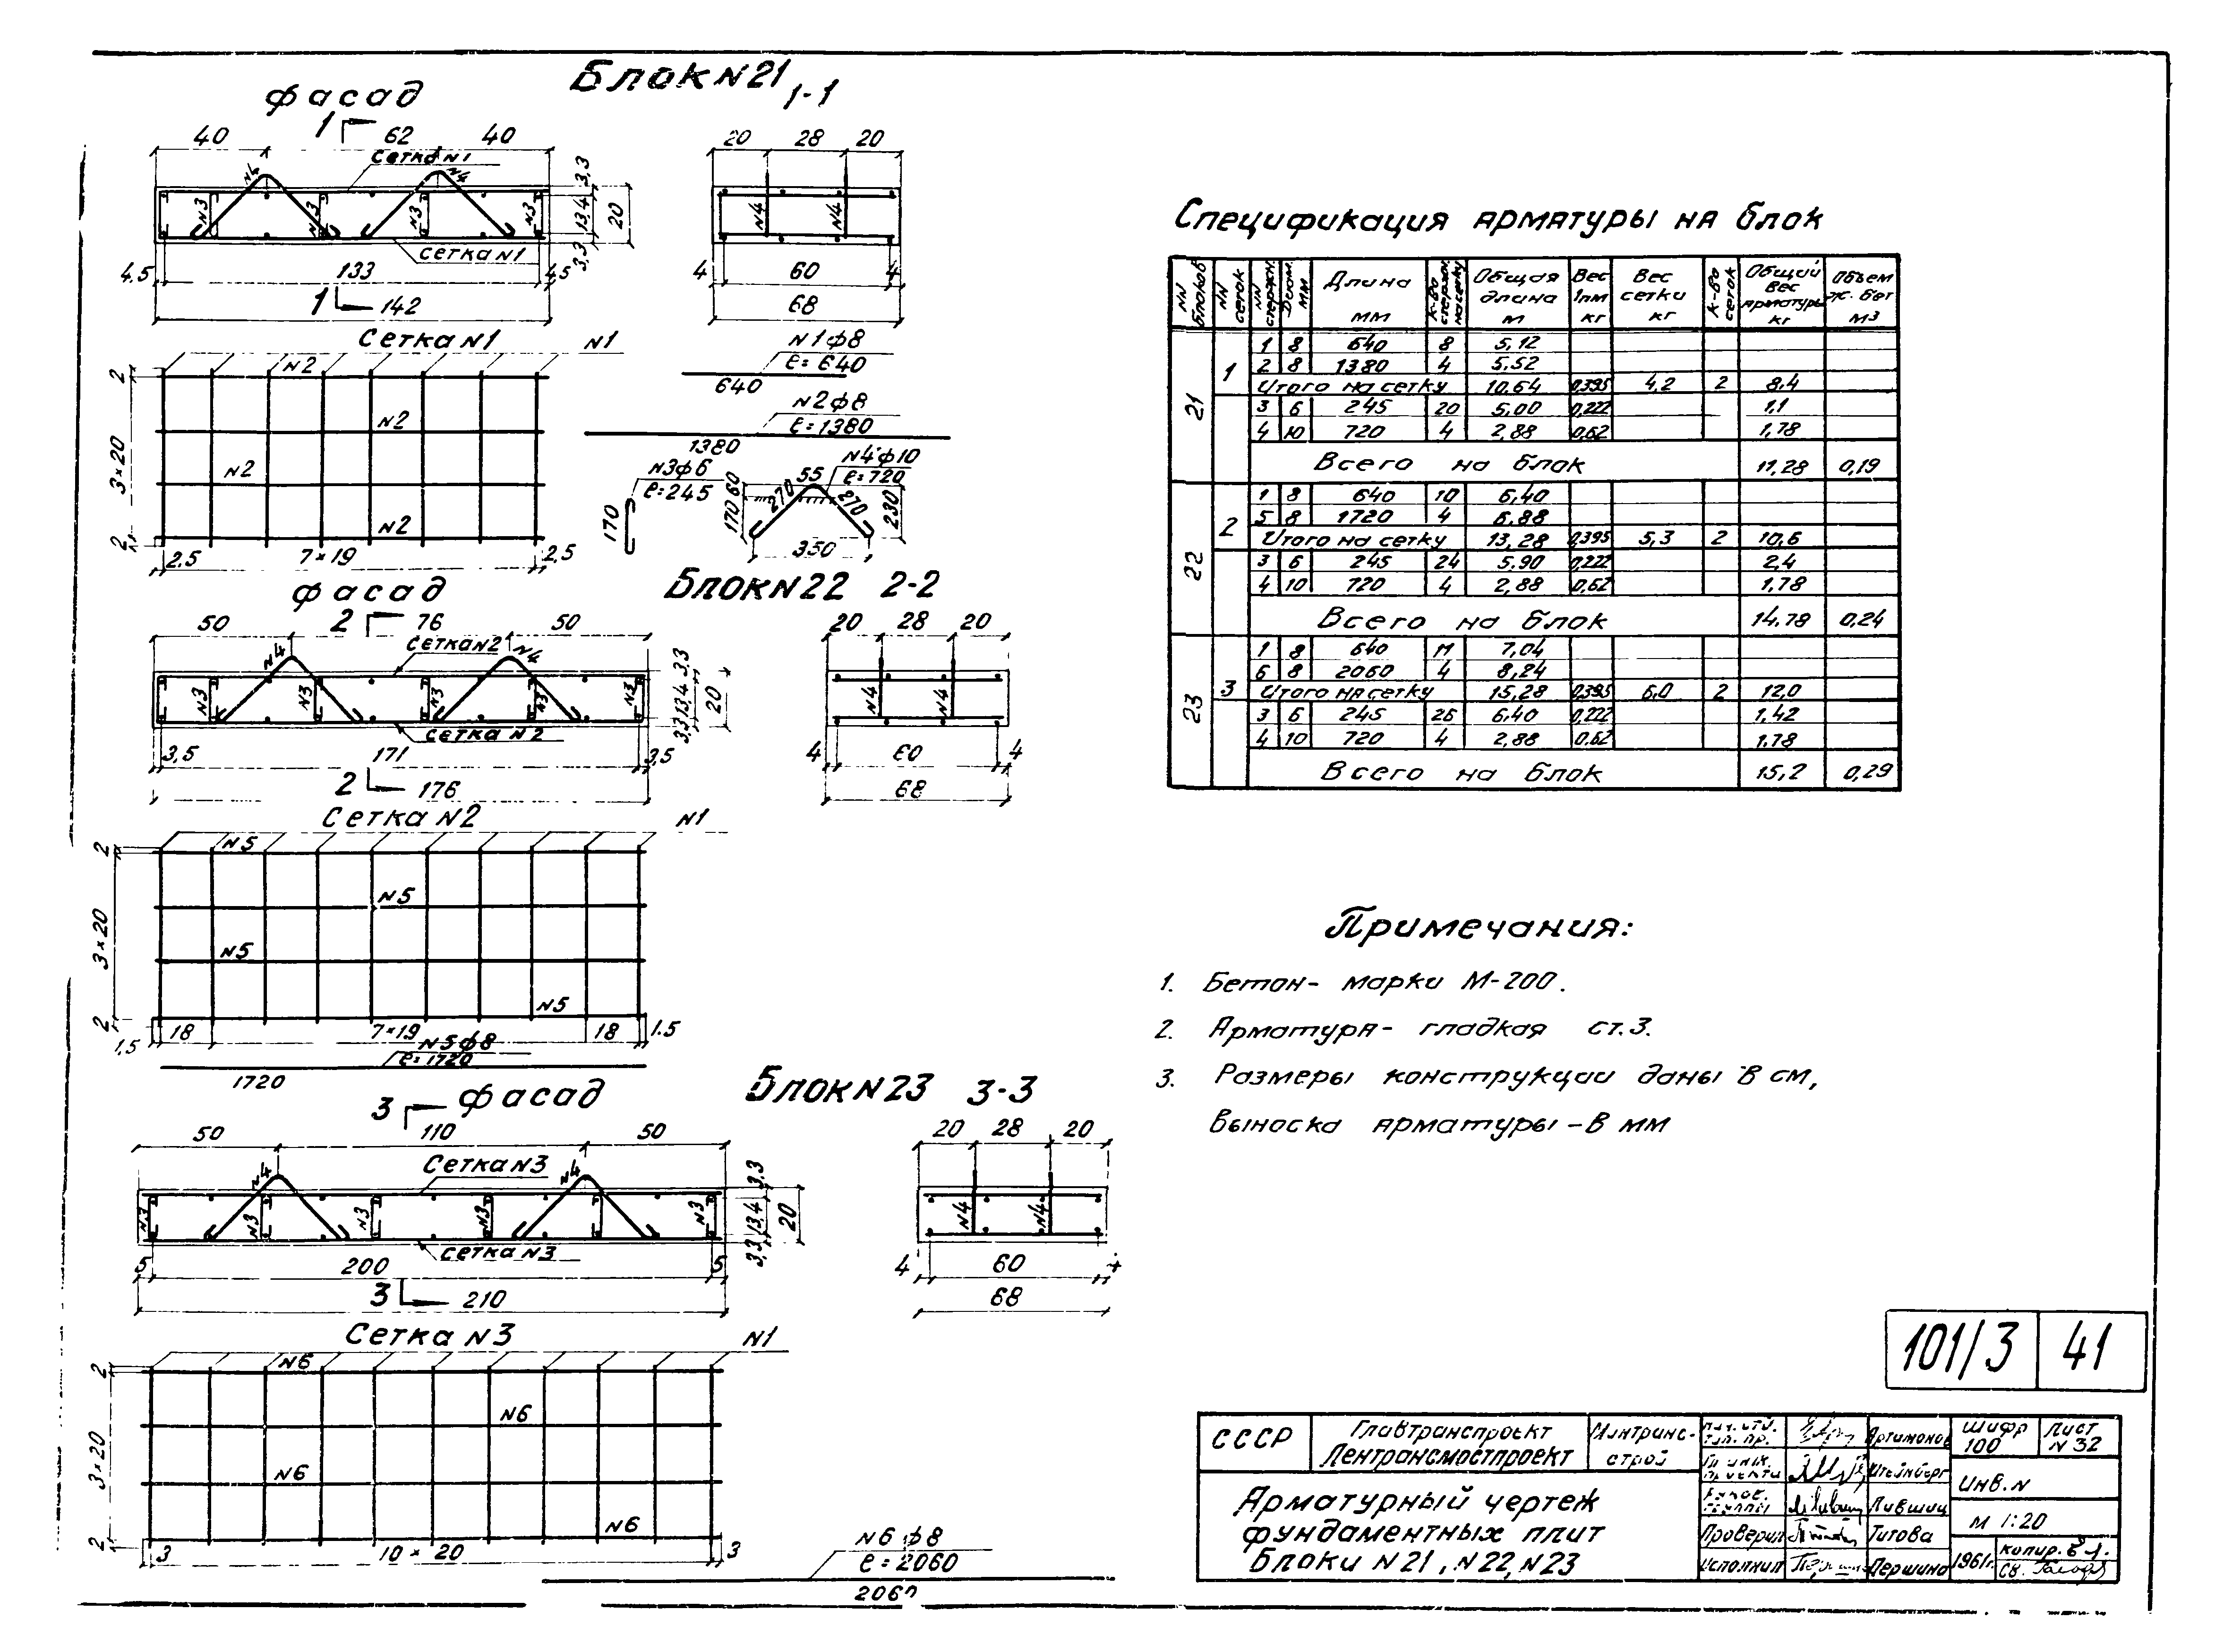 Блок N21
фасад
1-1
1
40 62 40
Сетка N1
N4 N4
N3 N3 N3 N3
3,3 13,4 3,3 20
сетка N1
4,5 133 4,5
1 142
20 28 20
N4 N4
4 60 4
68
Сетка N1 N1
N2
N2
N2
N2
2 3×20 2
2,5 7×19 2,5
N1ф8
e=640
640
N2ф8
e=1380
1380
N3ф6
e=245
170
N4ф10
e=720
55
270 270
170 60
230
350
Блок N22 2-2
фасад
2
50 76 50
сетка N2
N4 N4
N3 N3 N3 N3 N3
3,3 13,4 3,3 20
сетка N2
3,5 171 3,5
2 176
20 28 20
N4 N4
4 60 4
68
Сетка N2 N1
N5
N5
N5
N5
2 3×20 2
1,5 18 7×19 18 1.5
N5ф8
e=1720
1720
Блок N23 3-3
3 фасад
50 110 50
Сетка N3
N4 N4
N3 N3 N3 N3 N3
3,3 13,4 3,3 20
сетка N3
5 200 5
3 210
20 28 20
N4 N4
4 60
68
Сетка N3 N1
N6
N6
N6
N6
2 3×20 2
3 10×20 3
N6 ф8
e=2060
Спецификация арматуры на блок
NN блоков NN сеток NN стержн. Диам. мм Длина мм К-во стержн. на сетку Общая длина м Вес 1пм кг Вес сетки кг К-во сеток Общий вес арматуры кг Объем ж. бет м3
21 1 1 8 640 8 5,12
2 8 1380 4 5,52
Итого на сетку 10,64 0,395 4,2 2 8,4
3 6 245 20 5,00 0,222 1,1
4 10 720 4 2,88 0,62 1,78
Всего на блок 11,28 0,19
22 2 1 8 640 10 6,40
5 8 1720 4 6,88
Итого на сетку 13,28 0,395 5,3 2 10,6
3 6 245 24 5,90 0,222 2,4
4 10 720 4 2,88 0,62 1,78
Всего на блок 14,78 0,24
23 3 1 8 640 11 7,04
6 8 2060 4 8,24
Итого на сетку 15,28 0,395 6,0 2 12,0
3 6 245 26 6,40 0,222 1,42
4 10 720 4 2,88 0,62 1,78
Всего на блок 15,2 0,29
Примечания:
1. Бетон- марки М-200.
2. Арматура- гладкая ст.3.
3. Размеры конструкции даны в см,
выноска арматуры-в мм
101/3 41
СССР Главтранспроект Минтранс-
Лентрансмостпроект строй
Арматурный чертеж
фундаментных плит
Блоки N21, N22, N23
Артамонов
Штейнберг
Лившиц
Проверил Титова
Исполнил Першина
Шифр 100 Лист N 32
Инв. N
М 1:20
1961г. копир.
св.